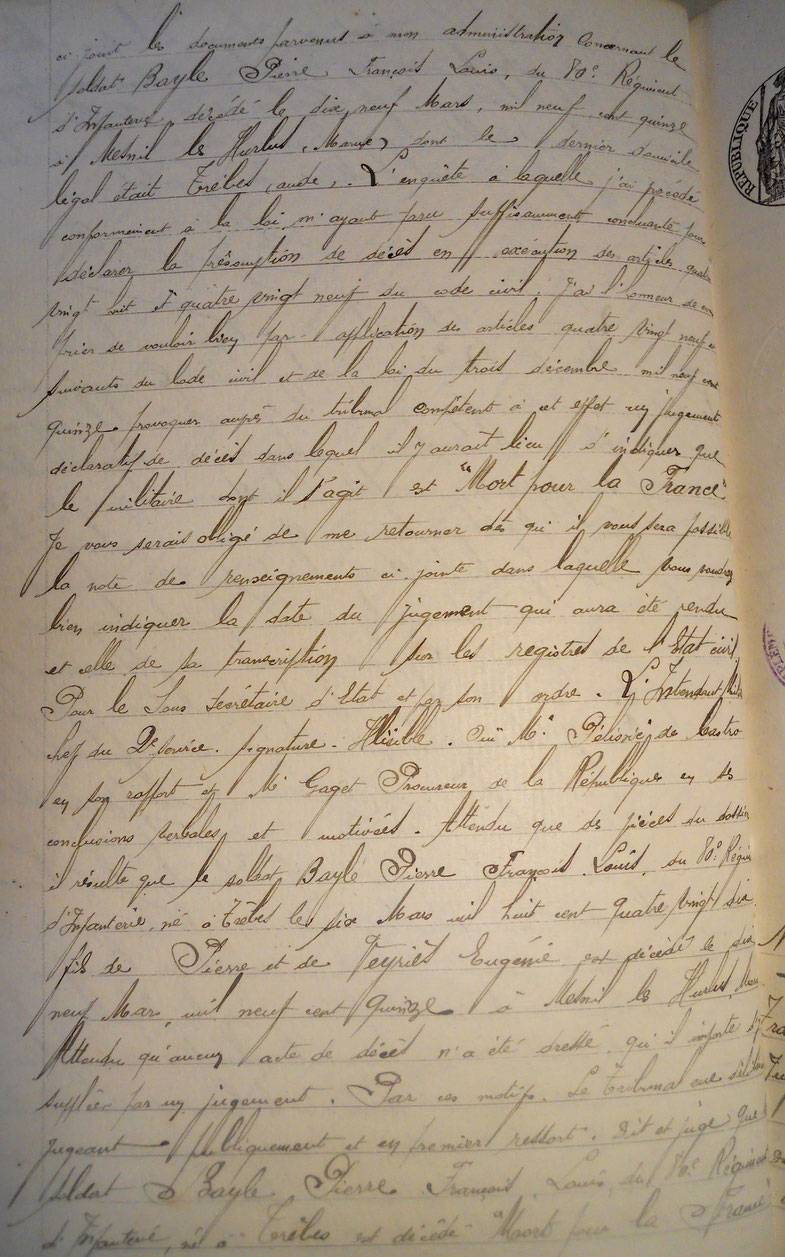 ci joint les documents parvenus à mon administration concernant le
soldat Bayle Pierre François Louis, du 80e Régiment
d'Infanterie, décédé le dix neuf Mars, mil neuf cent quinze
à Mesnil les Hurlus (Marne) dont le dernier domicile
légal était Trèbes (aude). L'enquête à laquelle j'ai procédé
conformément à la loi m'ayant paru suffisamment concluante pour
déclarer la présomption de décès en exécution des articles quatre
vingt huit et quatre vingt neuf du code civil. J'ai l'honneur de vous
prier de vouloir bien par application des articles quatre vingt neuf et
suivants du Code civil et de la loi du trois décembre mil neuf cent
quinze provoquer auprès du tribunal compétent à cet effet un jugement
déclaratif de décès dans lequel il y aurait lieu d'indiquer que
le militaire dont il s'agit est "Mort pour la France".
Je vous serais obligé de me retourner dès qu'il vous sera possible
la note de renseignements ci-jointe dans laquelle vous voudrez
bien indiquer la date du jugement qui aura été rendu
et celle de sa transcription sur les registres de l'Etat civil
Pour le Sous Secrétaire d'Etat et par son ordre. L'Intendant
chef du Service. Signature. Illisible. Oui Mr de Castro
en son rapport et Mr Gaget Procureur de la République en ses
conclusions verbales et motivées. Attendu que des pièces du dossier
il résulte que le soldat Bayle Pierre François Louis, du 80e Régiment
d'Infanterie, né à Trèbes le six Mars mil huit cent quatre vingt dix
fils de Pierre et de Veyriès Eugénie est décédé le dix
neuf Mars, mil neuf cent quinze à Mesnil les Hurlus,
Attendu qu'aucun acte de décès n'a été dressé, qu'il importe d'y
suppléer par un jugement. Par ces motifs. Le Tribunal
jugeant publiquement et en premier ressort. Dit et juge que
soldat Bayle Pierre François Louis, du 80e Régiment
d'Infanterie, né à Trèbes est décédé "Mort pour la France"
REPUBLIQUE